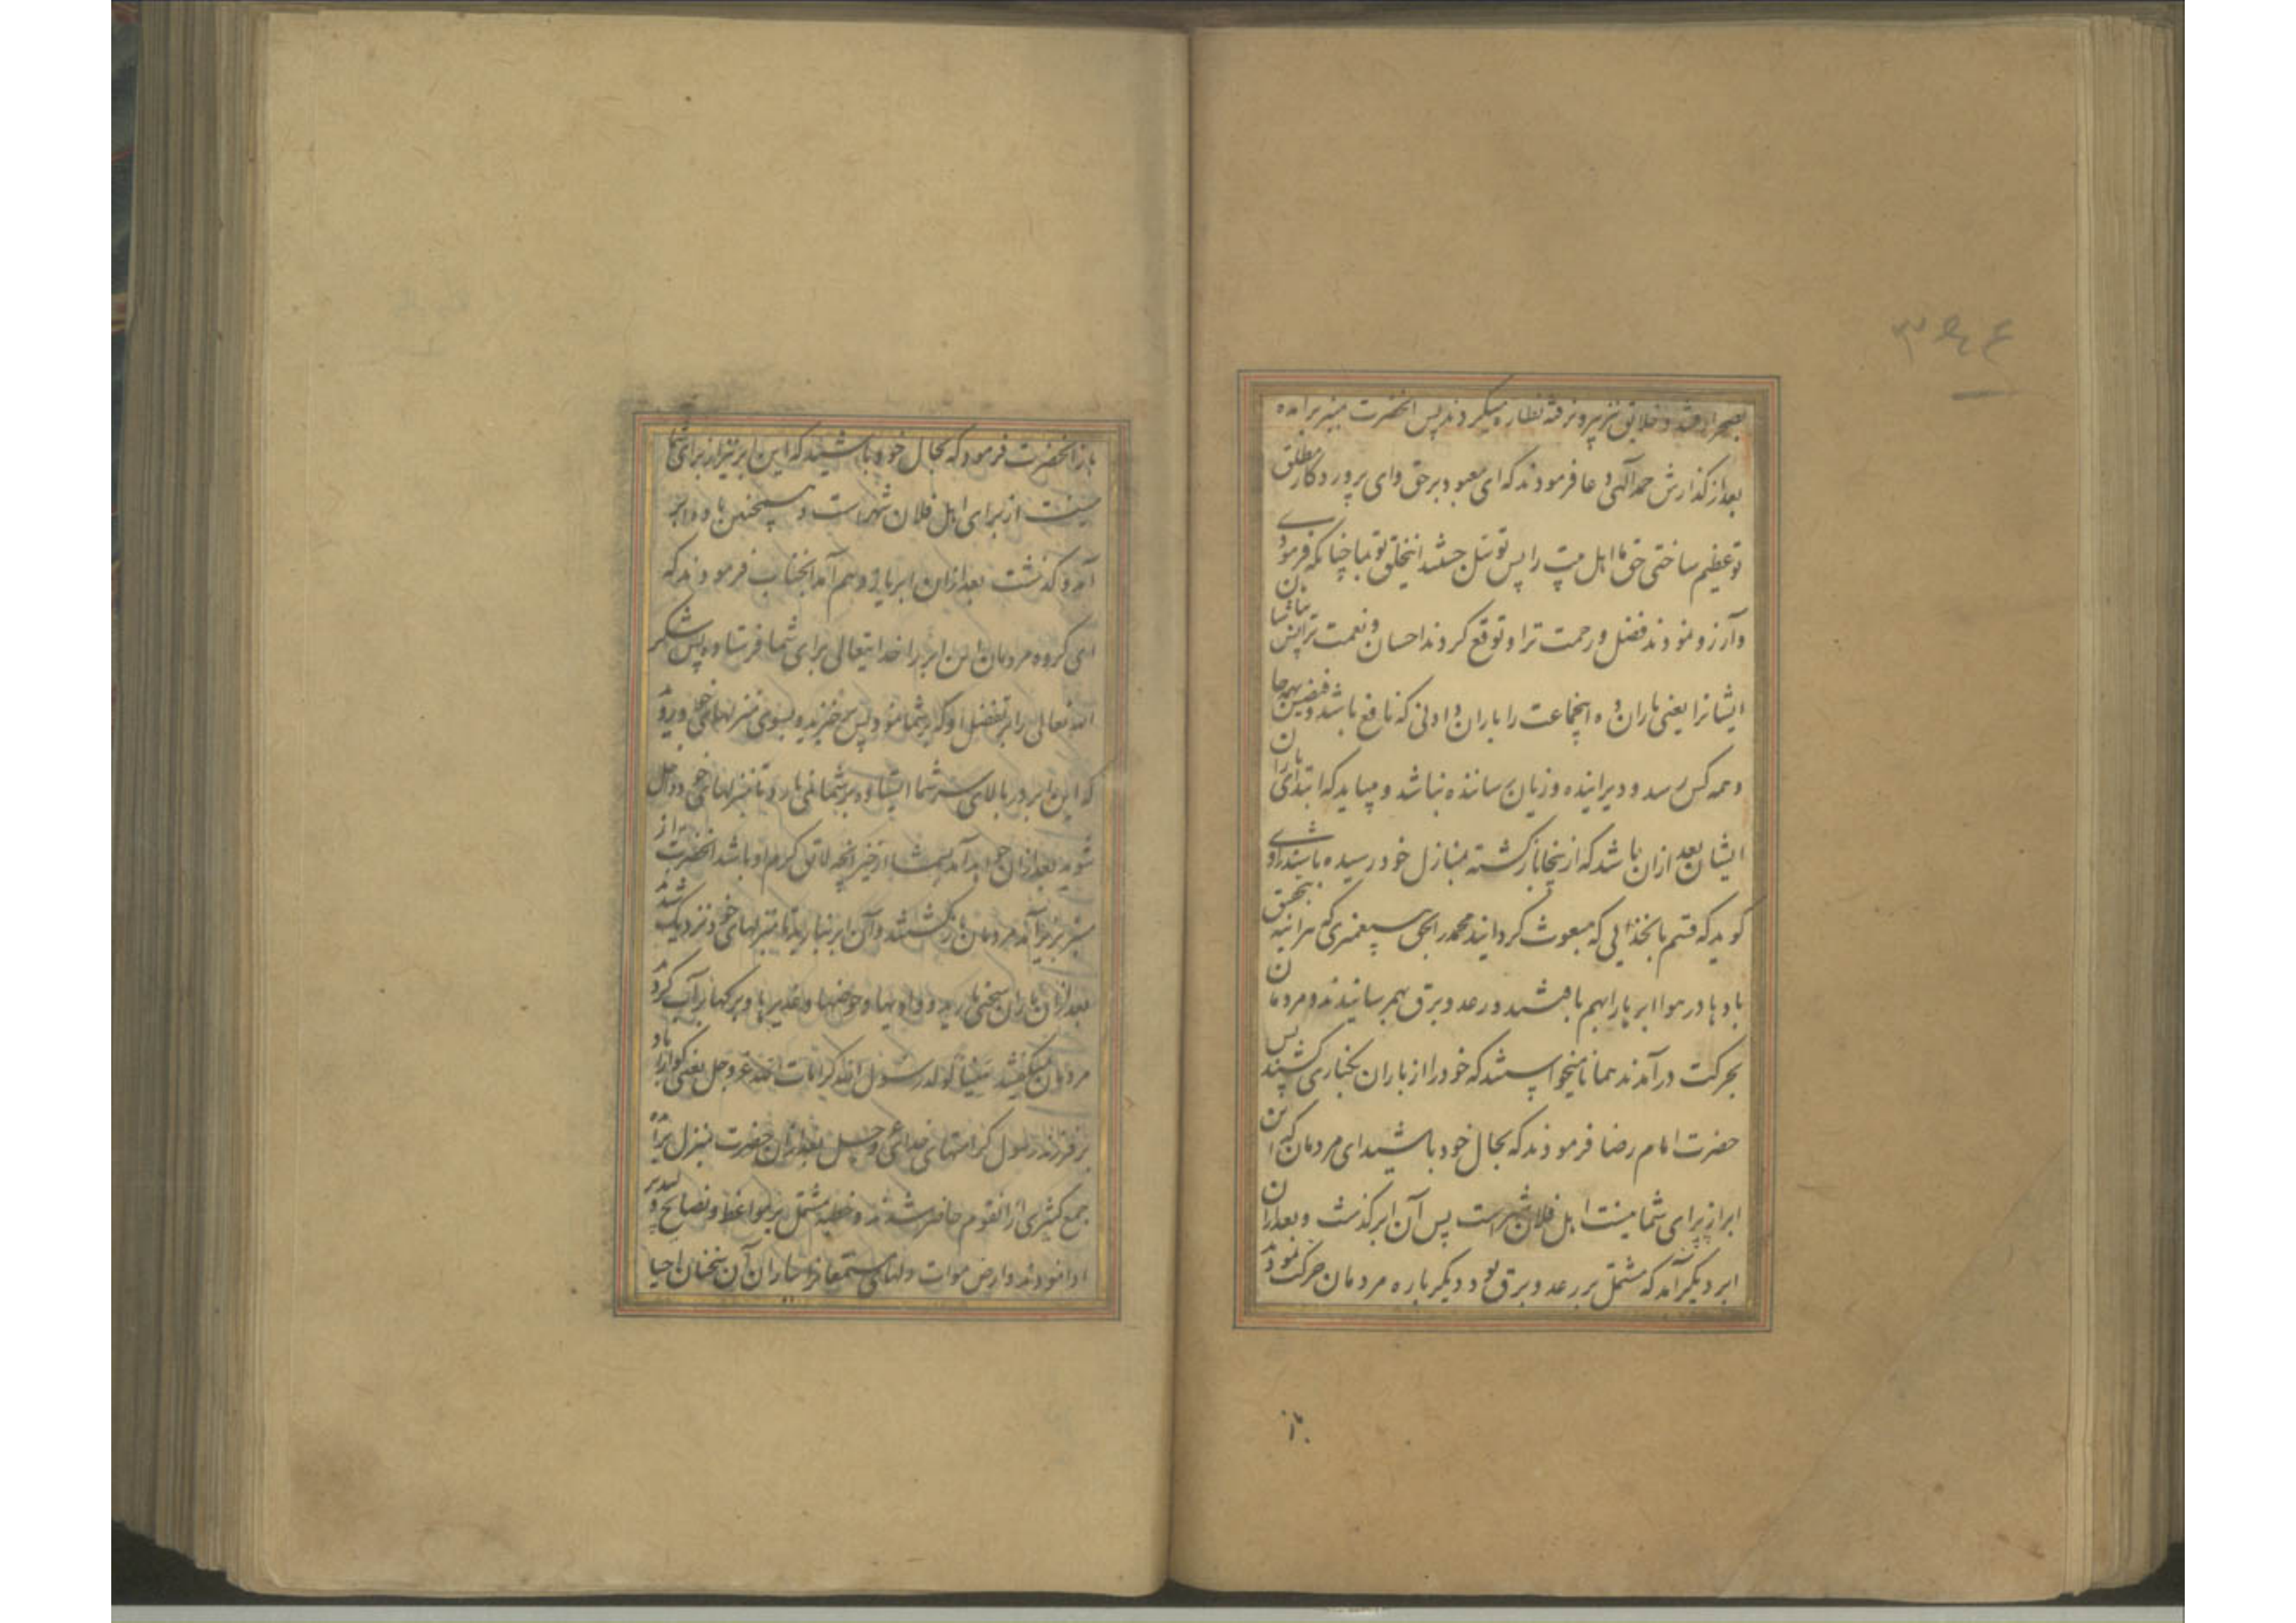 ۳۹۴
بصحرا رفتند و خلایق نیز بیرون رفته نظاره میکردند پس انحضرت بمنبر برامده
بعد از گذارش حمد آلهی دعا فرمودند که ای معبود برحق وای پروردگار مطلق
تو عظیم ساختی حق ما اهل بیت را پس توسل جستند اینخلق تو بما چنانکه فرمودی
وآرزو نمودند فضل و رحمت ترا و توقع کردند احسان و نعمت ترا پس
ایشانرا یعنی باران ده اینجماعت را باران دادنی که نافع باشد
وهمه کس رسد و دیر اینده و زیان رساننده نباشد و میباید که ابتدای باران
ایشان بعد از ان باشد که ازینجا بازگشته بمنازل خود رسیده باشند راوی
گوید که قسم بانخدائی که مبعوث گردانید محمد را بحق پیغمبری که هراینه
بادها در هوا ابرها را بهم بافتند و رعد و برق بهم رسانیدند و مردمان
بحرکت درآمدند همانا میخواستند که خود را از باران بکناری کشند پس
حضرت امام رضا فرمودند که بحال خود باشید ای مردمان که این
ابر از برای شما نیست اهل فلان شهرراست پس آن ابر گذشت و بعد از ان
ابر دیگر آمد که مشتمل بر رعد و برق بود و دیگر باره مردمان حرکت نمودند
باز
باز انحضرت فرمود که بحال خود باشیند که این ابر نیز از برای شما
نیست از برای اهل فلان شهراست و همچنین تا ده ابر
آمد و گذشت بعد ازان ابر یازدهم آمد انجناب فرمودند که
ای گروه مردمان این ابر را خدایتعالی برای شما فرستاده پس شکر
الله تعالی را بر تفضل او که بر شما نمود پس برخیزید و بسوی منزلهای خود روید
که این ابر در بالای سر شما ایستاده بر شما نمی بارد تا بمنزلهای خود داخل
شوید بعد ازان خواهد آمد بشما از خیر انچه لایق کرم او باشد انحضرت از
منبر بزیر آمد مردمان بازگشتند و آن ابر نبارید تا بمنزلهای خود نزدیک شدند
بعد ازان باران سختی بارید و وادیها و حوضها و غدیرها و برکها پر آب کردند
مردمان میگفتند هنیئا لولد رسول الله کرامات الله عز و جل یعنی گوارا باد
بر فرزند رسول کرامتهای خدای عز و جل بعد ازان حضرت بمنزل
جمع کثیری از انقوم حاضر شدند و خطبه مشتمل بر مواعظ و نصایح
ادا نمودند و ارض موات دلهای مستمعانرا بباران آن سخنان احیا